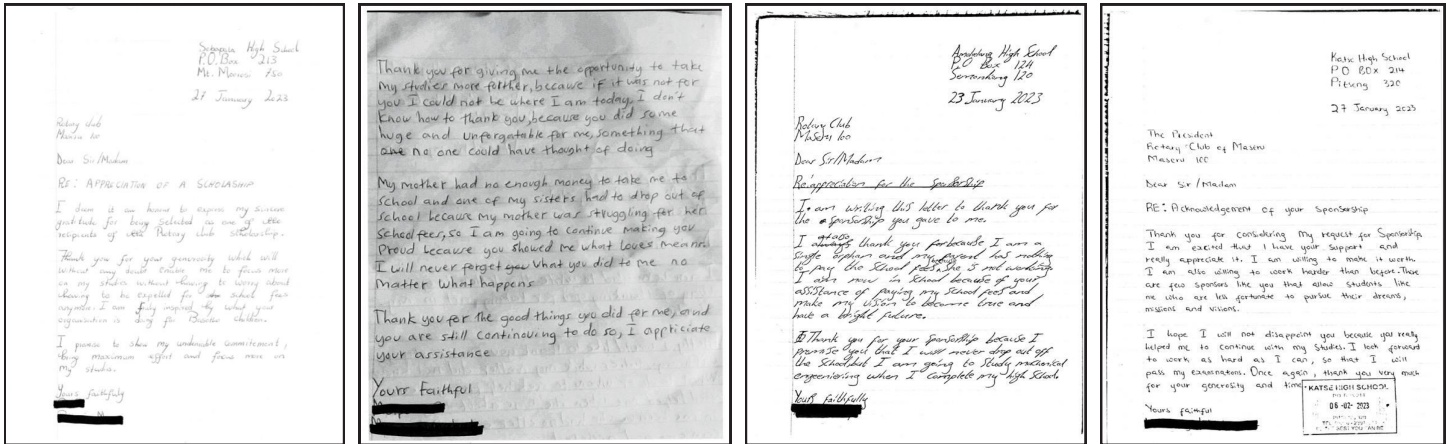 High School
P.O. Box 213
Mt. Moorosi 750
27 January 2023
Rotary Club
Maseru 100
Dear Sir/Madam
RE: APPRECIATION OF A SCHOLASHIP
I deem it an honour to express my sincere
gratitude for being selected as one of
recipients of Rotary club scholarship.
Thank you for your generosity which will
without any doubt enable me to focus more
on my studies without having to worry about
having to be expelled for school fees
anymore. I am fully inspired by what your
organisation is doing for Basotho children.
I promise to show my undeniable commitment,
bring maximum effort and focus more on
my studies.
Yours faithfully
Thank you for giving me the opportunity to take
My studies more forther, because if it was not for
you I could not be where I am today, I don't
know how to thank you, because you did some
huge and unforgatable for me, something that
no one could have thought of doing
My mother had no enough money to take me to
school and one of my sisters had to drop out of
school because my mother was struggling for her
school fees, so I am going to continue making you
Proud because you showed me what loves means
I will never forget what you did to me no
matter what happens
Thank you for the good things you did for me, and
you are still continouing to do so, I appriciate
your assistance
Yours Faithful
High School
P.O Box 124
Semonkong 120
23 January 2023
Rotary Club
Maseru 100
Dear Sir/Madam
Re: appreciation for the Sponsorship
I am writing this letter to thank you for
the sponsorship you gave to me.
I thank you for because I am a
single orphan and my parent has nothing
to pay the school fees, she is not working
I am now in school because of your
assistance of paying my school fees and
make my vision to become true and
have a bright future.
Thank you for your sponsorship because I
promise you that I will never drop out off
the school but I am going to study mechanical
engeniering when I complete my high school.
Yours faithfully
Katse High School
P O BOX 214
Pitseng 320
27 January 2023
The President
Rotary Club of Maseru
Maseru 100
Dear Sir / Madam
RE: Acknowledgement of your Sponsorship
Thank you for considering my request for Sponsorship
I am excited that I have your support and
really appreciate it. I am willing to make it worth.
I am also willing to work harder than before. There
are few sponsors like you that allow students like
me who are less fortunate to pursue their dreams,
missions and visions.
I hope I will not disappoint you because you really
helped me to continue with my studies. I look forward
to work as hard as I can, so that I will
pass my examinations. Once again, thank you very much
for your generosity and time
Yours faithful
KATSE HIGH SCHOOL
06-02-2023